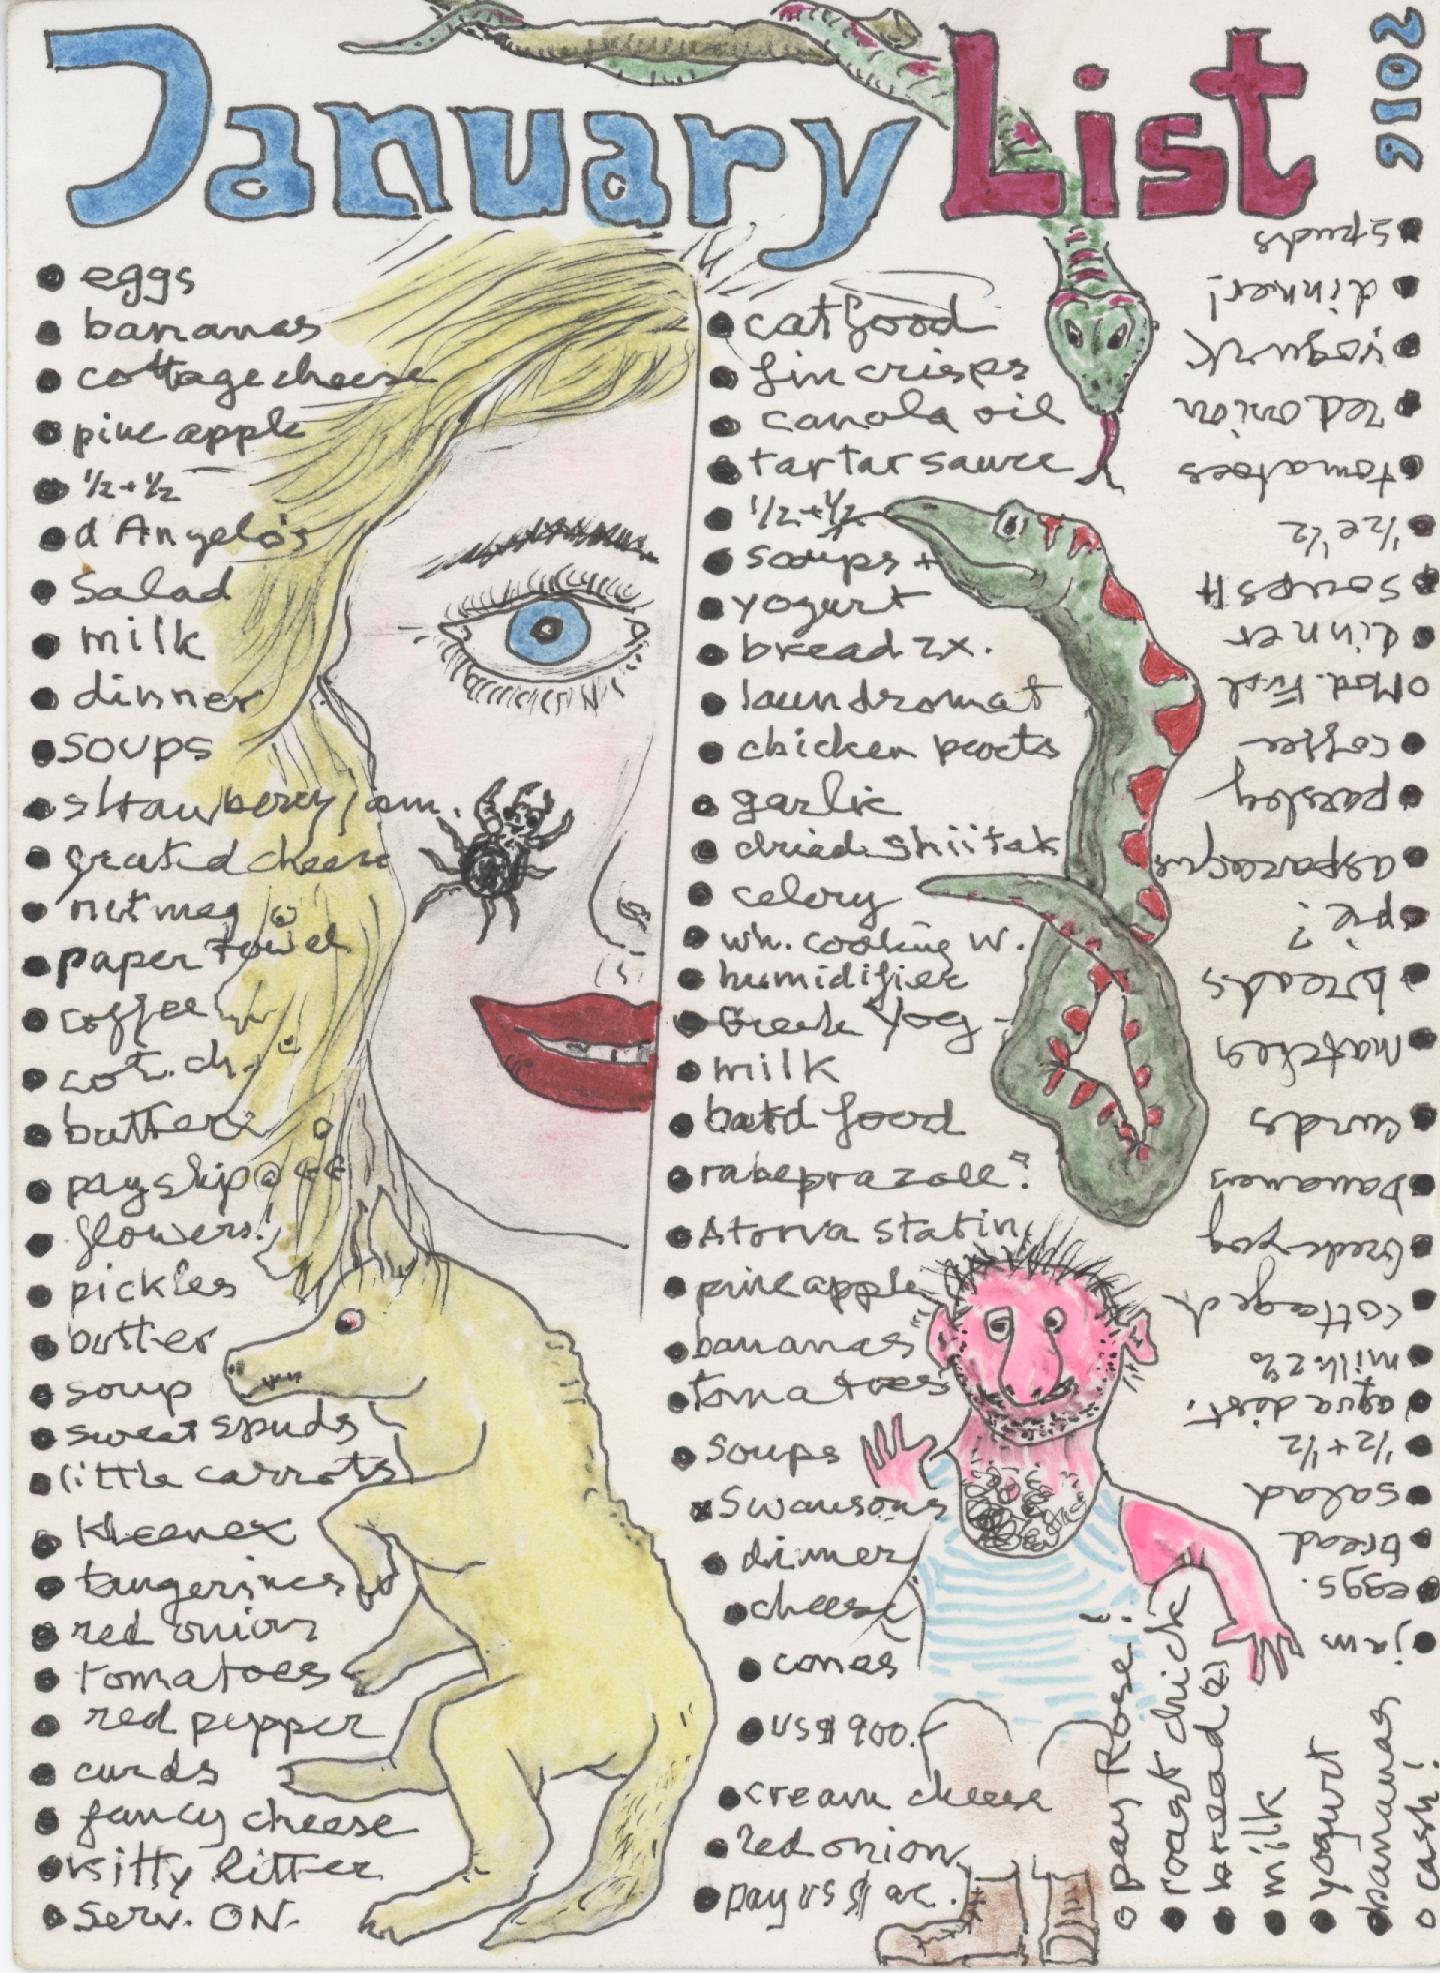 January List
2018
eggs
bananas
cottage cheese
pineapple
½+½
d'Angelo's
Salad
milk
dinner
soups
strawberry jam.
grated cheese
nutmeg
paper towel
coffee
cot. ch.
butter
pay ship@
flowers!
pickles
butter
soup
sweet spuds
little carrots
Kleenex
tangerines
red onion
tomatoes
red pepper
curds
fancy cheese
kitty litter
Serv. ON.
cat food
fin crisps
canola oil
tartar sauce
½+½
soups +
yogurt
bread 2x.
laundromat
chicken parts
garlic
dried shiitak
celery
wh. cooking w.
humidifier
Greek Yog
milk
bird food
rabeprazole?
Atorva statin
pineapple
bananas
tomatoes
soups
Swansons
dinner
cheese
cones
US$ 900.
cream cheese
red onion
pay US $ ac.
pay Rose!
roast chick
bread (2)
milk
yogurt
bananas
cash!
jam
eggs.
bread
salad
½+½
aqua dist.
milk 2%
cottage ch
Greek yog
bananas
curds
matches
breads
pie?
asparagus
parsley
coffee
Mod. First
dinner
soups 4
½ e ½
tomatoes
red onion
yogurt
dinner!
spuds